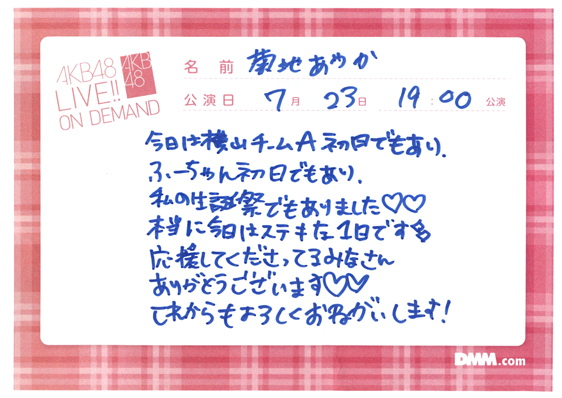 AKB48
LIVE!!
ON DEMAND
AKB
48
名前 菊地あやか
公演日 7月 23日 19:00 公演
今日は横山チームA初日でもあり、
ふーちゃん初日でもあり、
私の生誕祭でもありました♡♡
本当に今日はステキな1日です
応援してくださってるみなさん
ありがとうございます♡♡
これからもよろしくおねがいします!
DMM.com